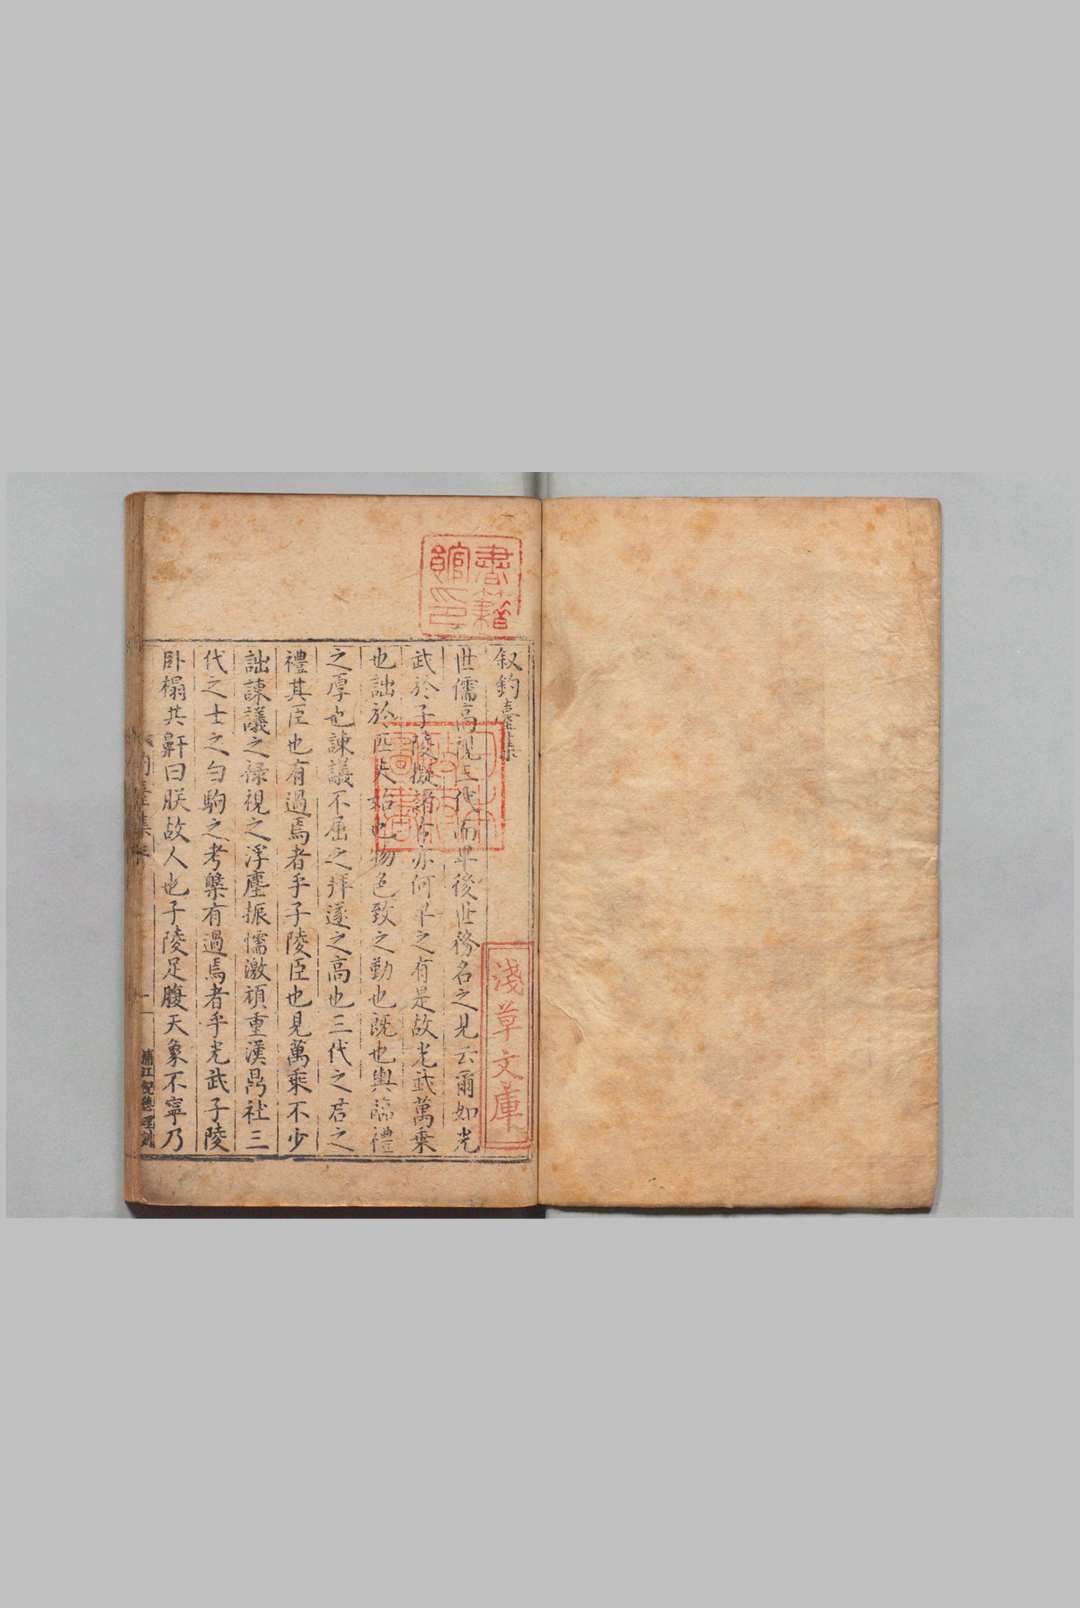 叙釣臺集
世儒高視三代而卑後世務名之見云爾如光
武於子陵擬諸古亦何卑之有是故光武萬乘
也詘於匹夫始也物色致之勤也既也輿臨禮
之厚也諫議不屈之拜遂之高也三代之君之
禮其臣也有過焉者乎子陵臣也見萬乘不少
詘諫議之祿視之浮塵振懦激頑重漢鼎社三
代之士之白駒之考槃有過焉者乎光武子陵
卧榻共鼾曰朕故人也子陵足腹天象不寧乃
書籍
館印
淺草文庫